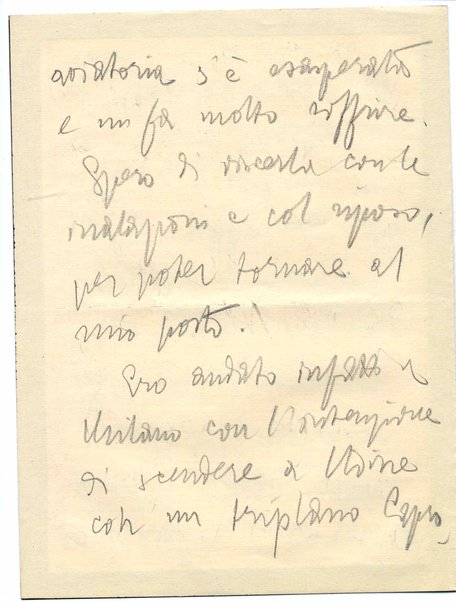 aviatoria s'è esasperata
e mi fa molto soffrire.
Spero di vincerla con le
inalazioni e col riposo,
per poter tornare al
mio posto.
Ero andato infatti a
Milano con l'intenzione
di scendere a Udine
con un triplano Capro,